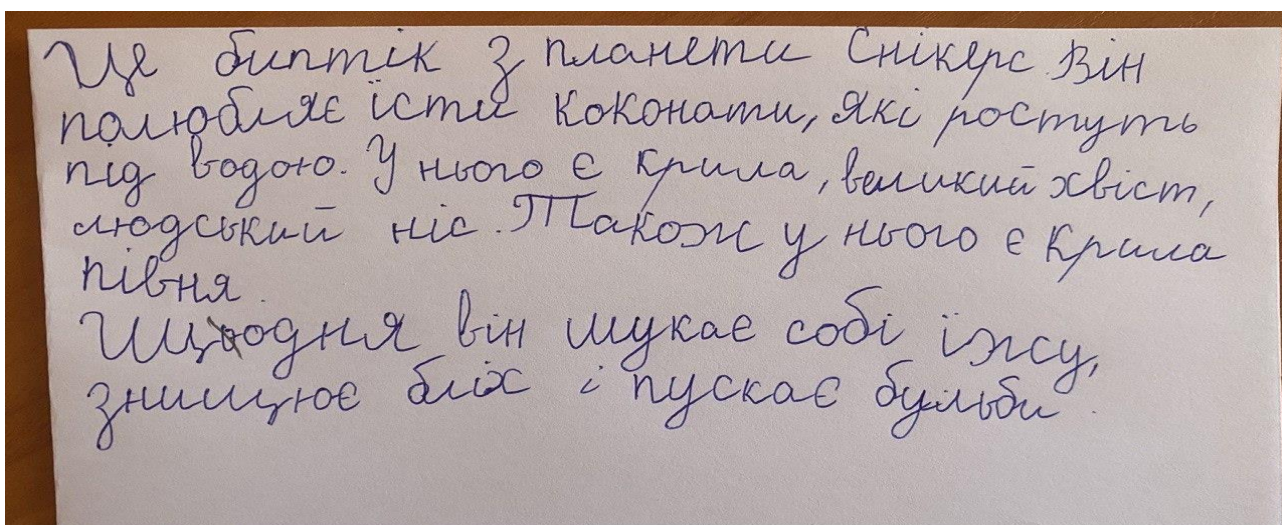 Це биптік з планети Снікерс. Він
полюбляє їсти коконати, які ростуть
під водою. У нього є крила, великий хвіст,
людський ніс. Також у нього є крила
півня.
Щодня він шукає собі їжу,
знищює бліх і пускає бульби.